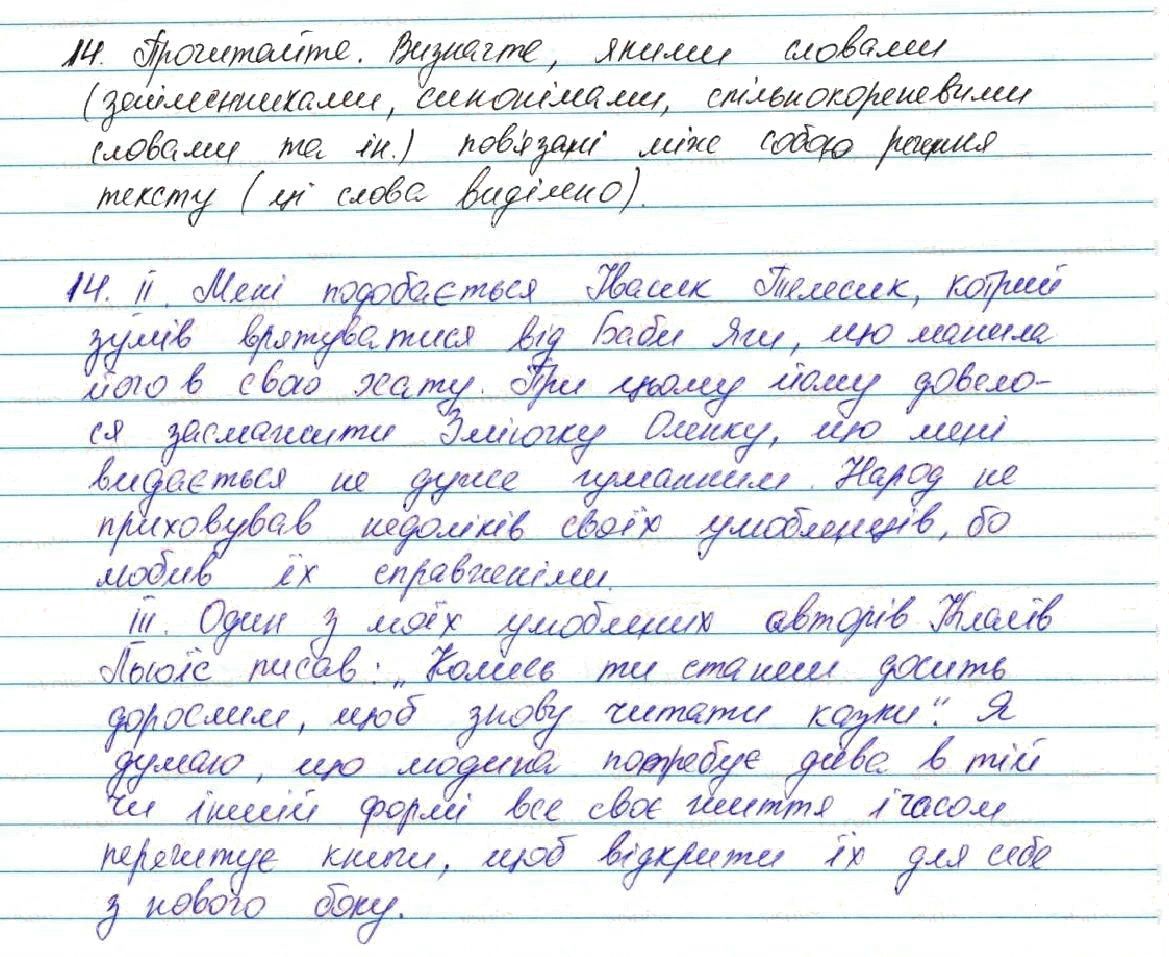 14. Прочитайте. Визначте, якими словами
(займенниками, синонімами, спільнокореневими
словами та ін.) пов'язані між собою речення
тексту (ці слова виділено).
14. II. Мені подобається Івасик Телесик, котрий
зумів врятуватися від Баби Яги, що манила
його в свою хату. При цьому йому довело-
ся засмажити Зміючку Оленку, що мені
видається не дуже гуманним. Народ не
приховував недоліків своїх улюбленців, бо
любив їх справжніми.
III. Один з моїх улюблених авторів Клайв
Льюїс писав: „Колись ти станеш досить
дорослим, щоб знову читати казки". Я
думаю, що людина потребує дива в тій
чи іншій формі все своє життя і часом
перечитує книги, щоб відкрити їх для себе
з нового боку.